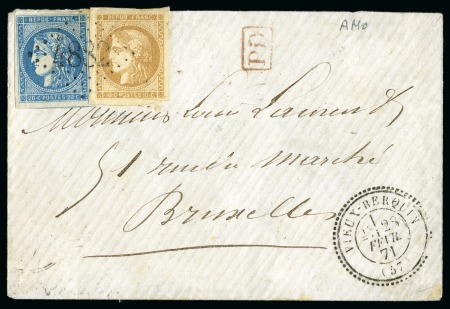 REPUB. FRANC.
20 C POSTES 20 C
REPUB. FRANC.
10 C POSTES 10 C
4882
PD
AMO
Monsieur Louis Laurent
51 rue du marché
Bruxelles
VIEUX-BERQUIN
1
28
FEVR.
71
(57)